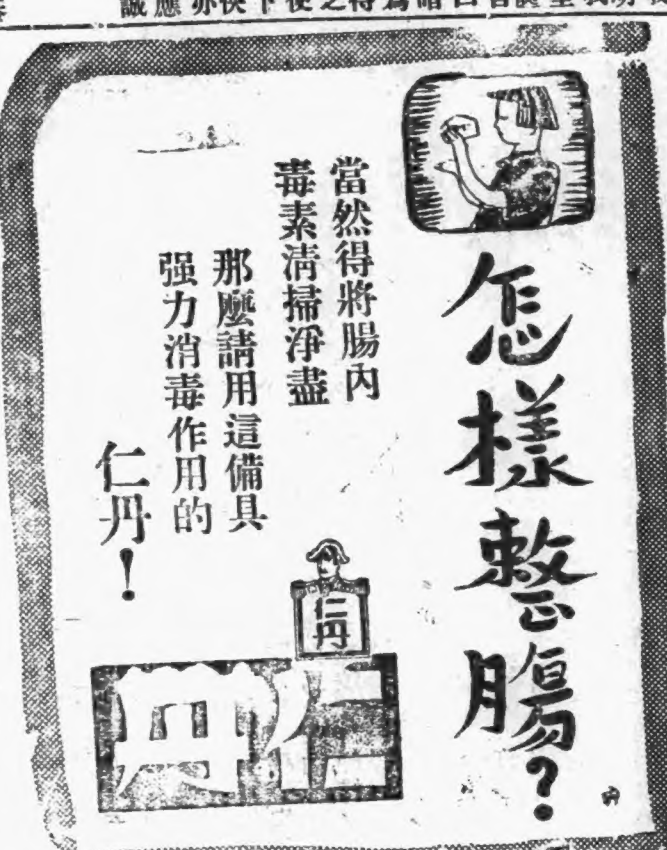 怎樣整腸?
當然得將腸內
毒素清掃淨盡
那麼請用這備具
强力消毒作用的
仁丹!
仁丹
仁丹